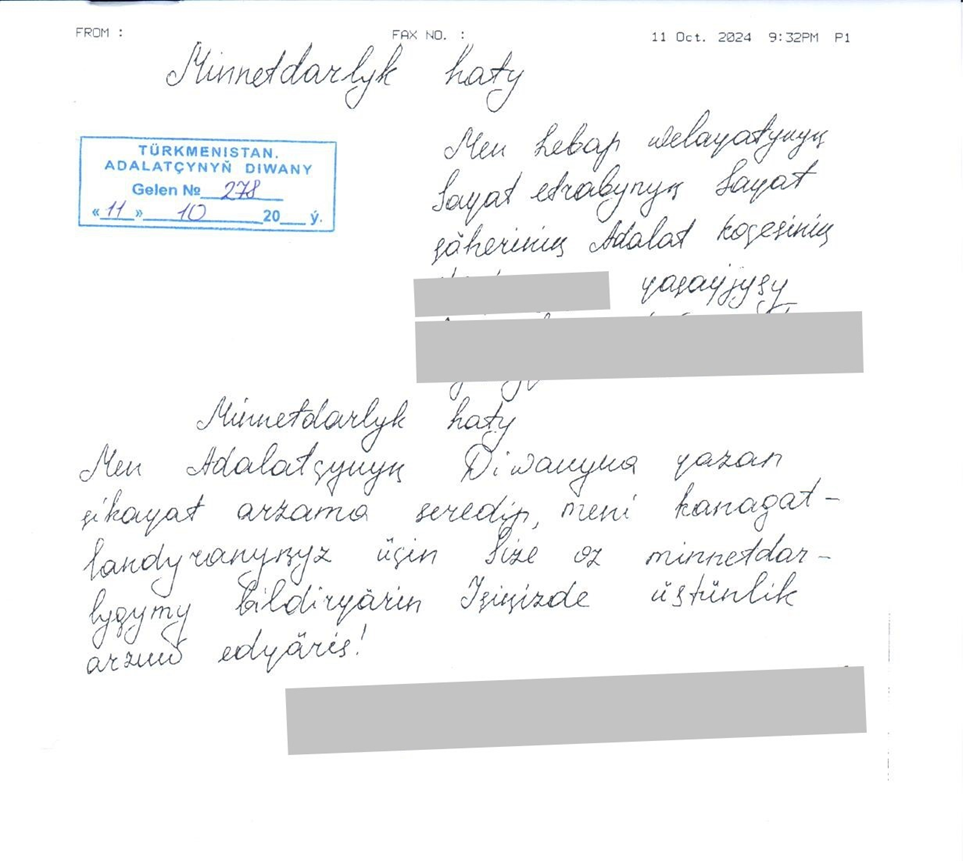 FROM :
FAX NO. :
11 Oct. 2024 9:32PM P1
Minnetdarlyk haty
TÜRKMENISTAN.
ADALATÇYNYŇ DIWANY
Gelen № 278
«11» 10 20 ý.
Men Lebap welaýatynyň
Saýat etrabynyň Saýat
şäheriniň Adalat köçesiniň
ýaşaýjysy
Minnetdarlyk haty
Men Adalatçynyň Diwanyna ýazan
şikaýat arzama seredip, meni kanagat-
landyranyňyz üçin Size öz minnetdar-
lygymy bildirýärin Işiňizde üstünlik
arzuw edýäris!